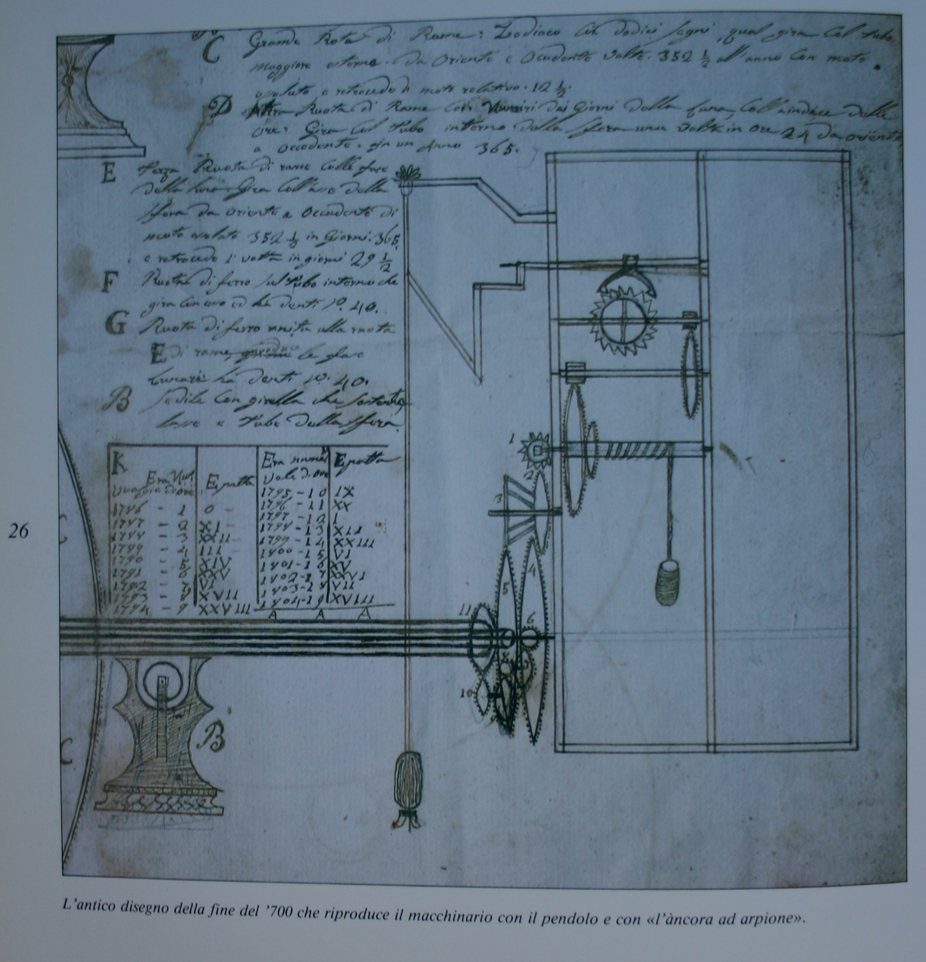 C Grande Rota di Rame: Zodiaco con dodici segni, qual gira col tubo
maggiore esterno da Oriente e Occidente volte 352 ½ all'anno con moto
e retrocede di moto relativo 12 ½
D Altra Ruota di Rame con Numeri dei Giorni della Luna, coll'indice delle
ore: Gira col tubo interno della sfera una volta in ore 24 da oriente
a occidente. In un Anno 365.
E Terza Ruota di rame colle fase
della luna. Gira coll' della
sfera da Oriente a Occidente di
moto 352 ½ in Giorni 365
e retrocede 1 volta in giorni 29 ½
F Ruota di ferro sul tubo interno che
gira ed ha denti N. 40.
G Ruota di ferro unita alla ruota
E di rame, le fasi
lunari ha denti N. 40.
B Sedile con girella che sostenta
e tubo della sfera.
K
Epatta
Epatta
1786 - 1 0
1787 - 2 XI
3 XXII
4 III
1790 - 5 XIV
1791 - 6 XXV
1792 - 7 VI
1793 - 8 XVII
1794 - 9 XXVIII
1795 - 10 IX
1796 - 11 XX
1797 - 12 I
13 XII
1799 - 14 XXIII
1800 - 15 VI
1801 - 16 XV
1802 - 17 XXVI
1803 - 18 VII
1804 - 19 XVIII
A A A
1
2
3
4
5
6
11
10
B
C
C
26
L'antico disegno della fine del '700 che riproduce il macchinario con il pendolo e con «l'àncora ad arpione».